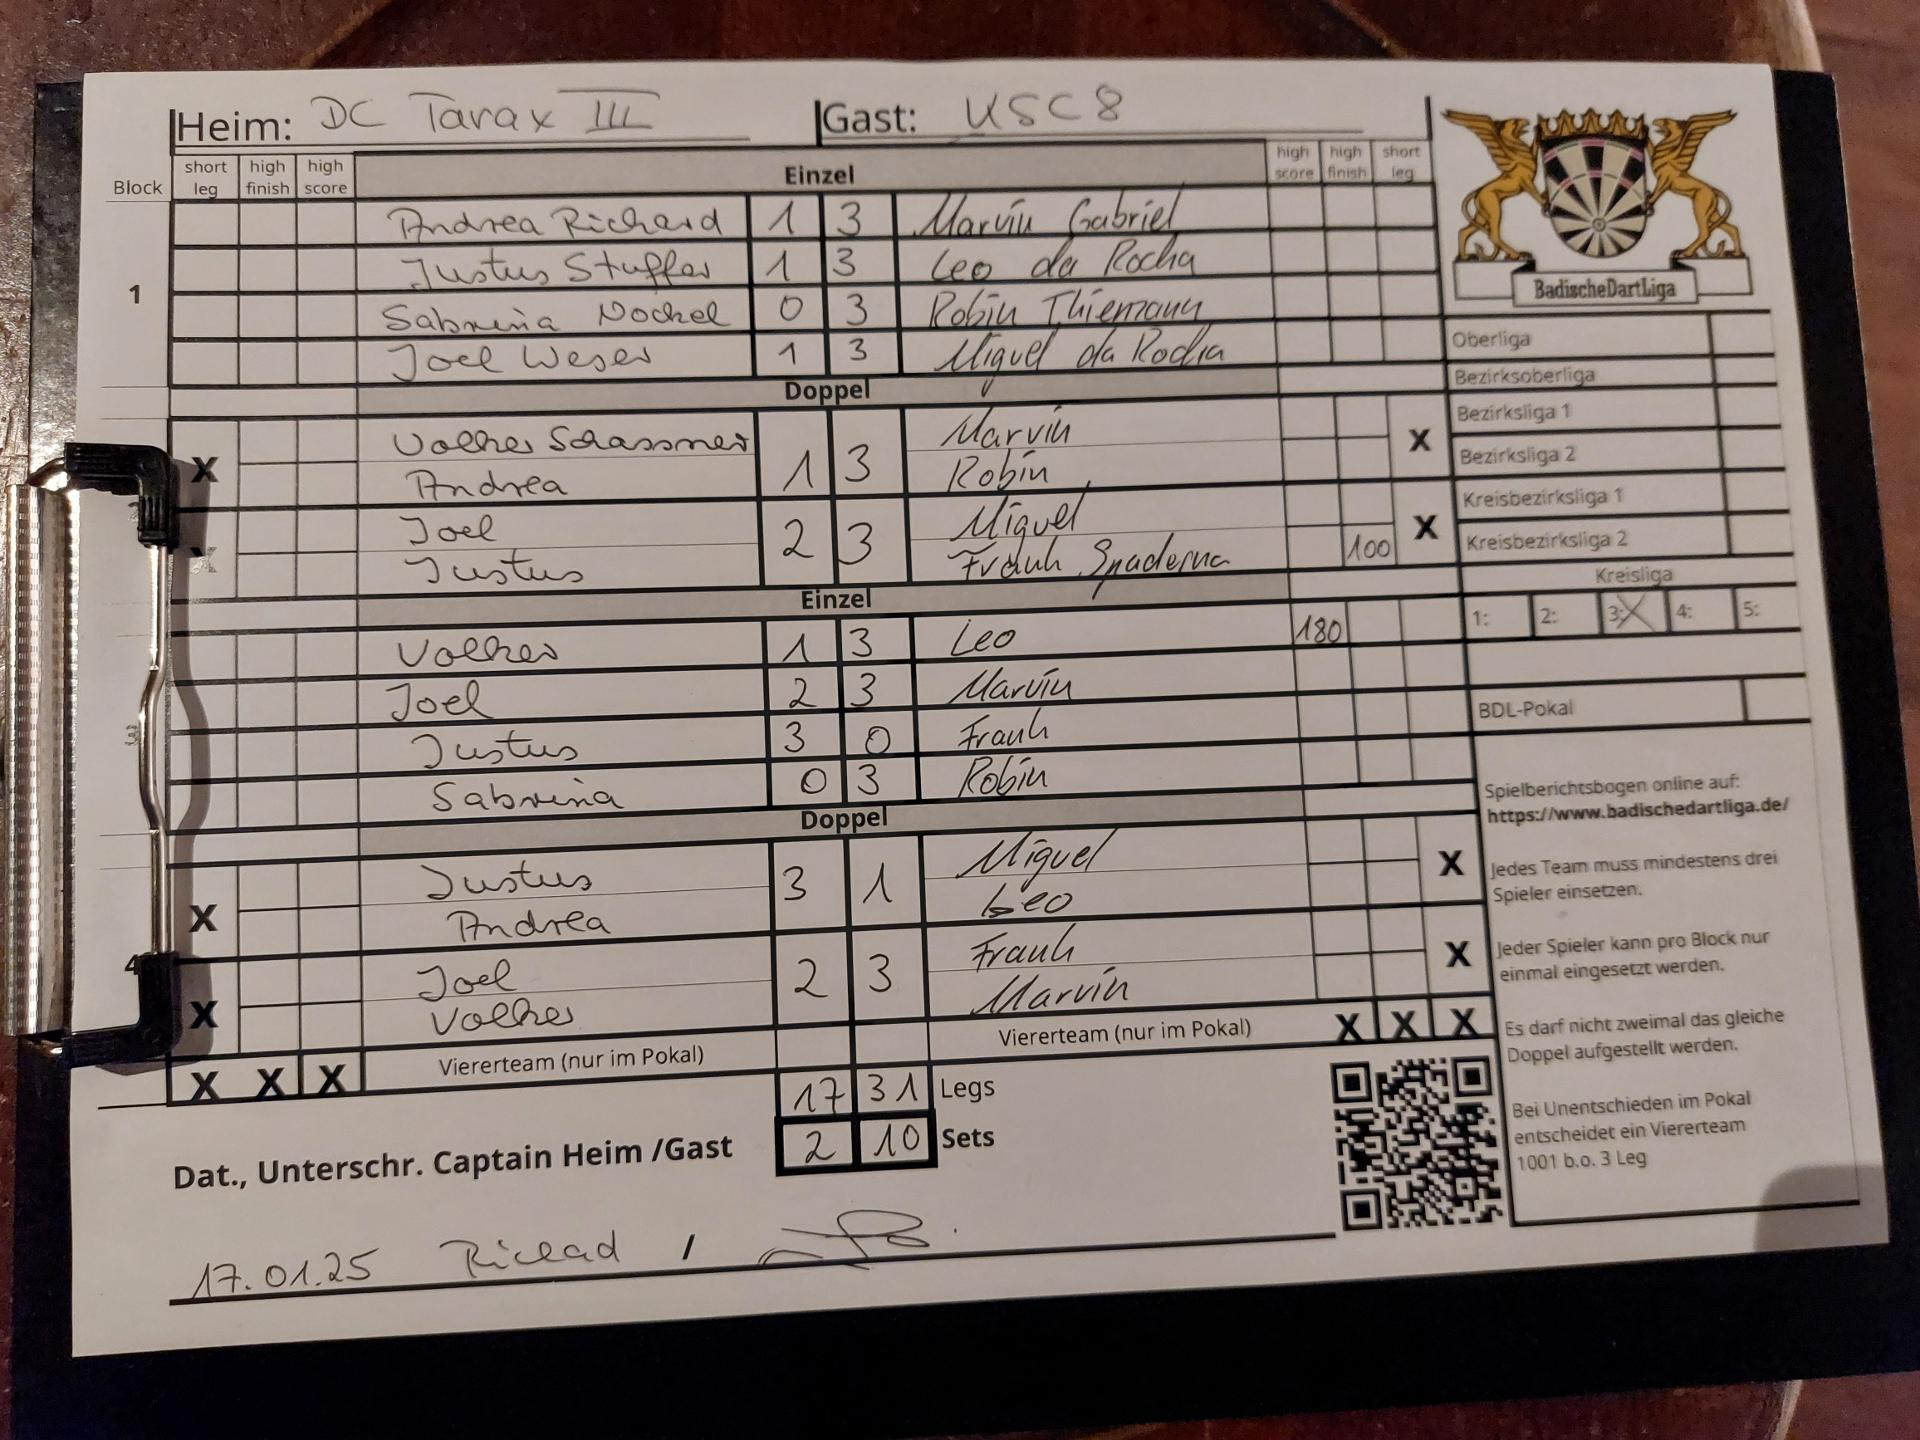 Heim: DC Tarax III Gast: KSC 8
Block short leg high finish high score Einzel high score high finish short leg
1
Andrea Richard 1 3 Marvin Gabriel
Justus Stuffer 1 3 Leo da Rocha
Sabrina Nockel 0 3 Robin Thiemann
Joel Weser 1 3 Miguel da Rocha
Doppel
X Volker Schassner 1 3 Marvin X
Andrea Robin
X Joel 2 3 Miguel X
Justus Frank Spaderna 100
Einzel
Volker 1 3 Leo 180
Joel 2 3 Marvin
Justus 3 0 Frank
Sabrina 0 3 Robin
Doppel
4
X Justus 3 1 Miguel X
Andrea Leo
X Joel 2 3 Frank X
Volker Marvin
X X X Viererteam (nur im Pokal) Viererteam (nur im Pokal) X X X
17 31 Legs
2 10 Sets
Dat., Unterschr. Captain Heim /Gast
17.01.25 Richard /
BadischeDartLiga
Oberliga
Bezirksoberliga
Bezirksliga 1
Bezirksliga 2
Kreisbezirksliga 1
Kreisbezirksliga 2
Kreisliga
1: 2: 3: X 4: 5:
BDL-Pokal
Spielberichtsbogen online auf:
https://www.badischedartliga.de/
Jedes Team muss mindestens drei
Spieler einsetzen.
Jeder Spieler kann pro Block nur
einmal eingesetzt werden.
Es darf nicht zweimal das gleiche
Doppel aufgestellt werden.
Bei Unentschieden im Pokal
entscheidet ein Viererteam
1001 b.o. 3 Leg